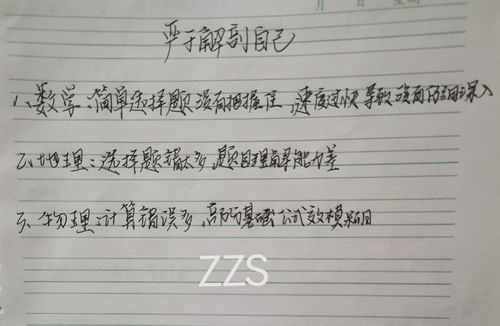 严于解剖自己
1、数学:简单选择题没有把握住,速度过快导致
2、地理:选择题错太多,题目理解能力差
3、物理:计算错误多,部分基础公式效模糊
ZZS